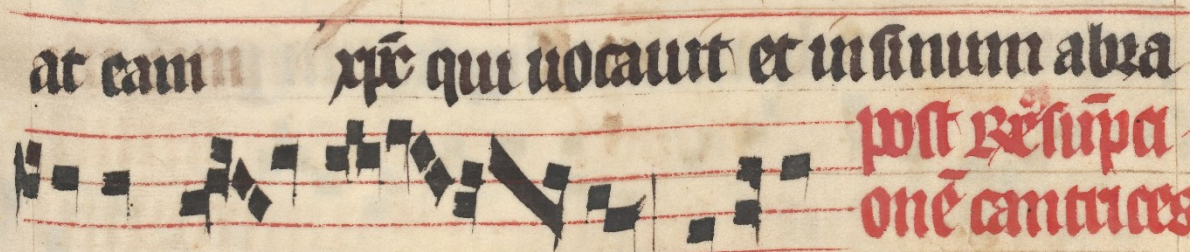 at eam xp̄c qui uocauit et in sinum abra
post Resūpti
onē cantrices